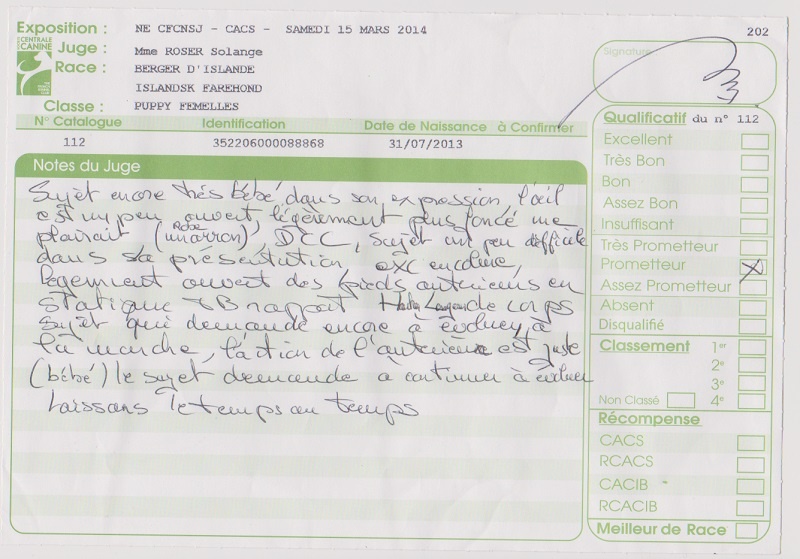 Exposition : NE CFCNSJ - CACS - SAMEDI 15 MARS 2014
202
CENTRALE CANINE
Juge : Mme ROSER Solange
Signature
Race : BERGER D'ISLANDE
ISLANDSK FAREHOND
Classe : PUPPY FEMELLES
N° Catalogue Identification Date de Naissance à Confirmer
112 352206000088868 31/07/2013
Notes du Juge
Sujet encore très bébé dans son expression, l'œil
est un peu ouvert légèrement plus foncé me
plairait (Robe marron), DCC, sujet un peu difficile
dans sa présentation, exc encolure,
légèrement ouvert des pieds antérieurs en
statique TB rapport de corps
Sujet qui demande encore à évoluer, à
la marche, l'action de l'antérieur est juste
(bébé) le sujet demande a continuer à évoluer
Laissons le temps au temps
Qualificatif du n° 112
Excellent
Très Bon
Bon
Assez Bon
Insuffisant
Très Prometteur
Prometteur X
Assez Prometteur
Absent
Disqualifié
Classement 1er
2e
3e
Non Classé 4e
Récompense
CACS
RCACS
CACIB
RCACIB
Meilleur de Race